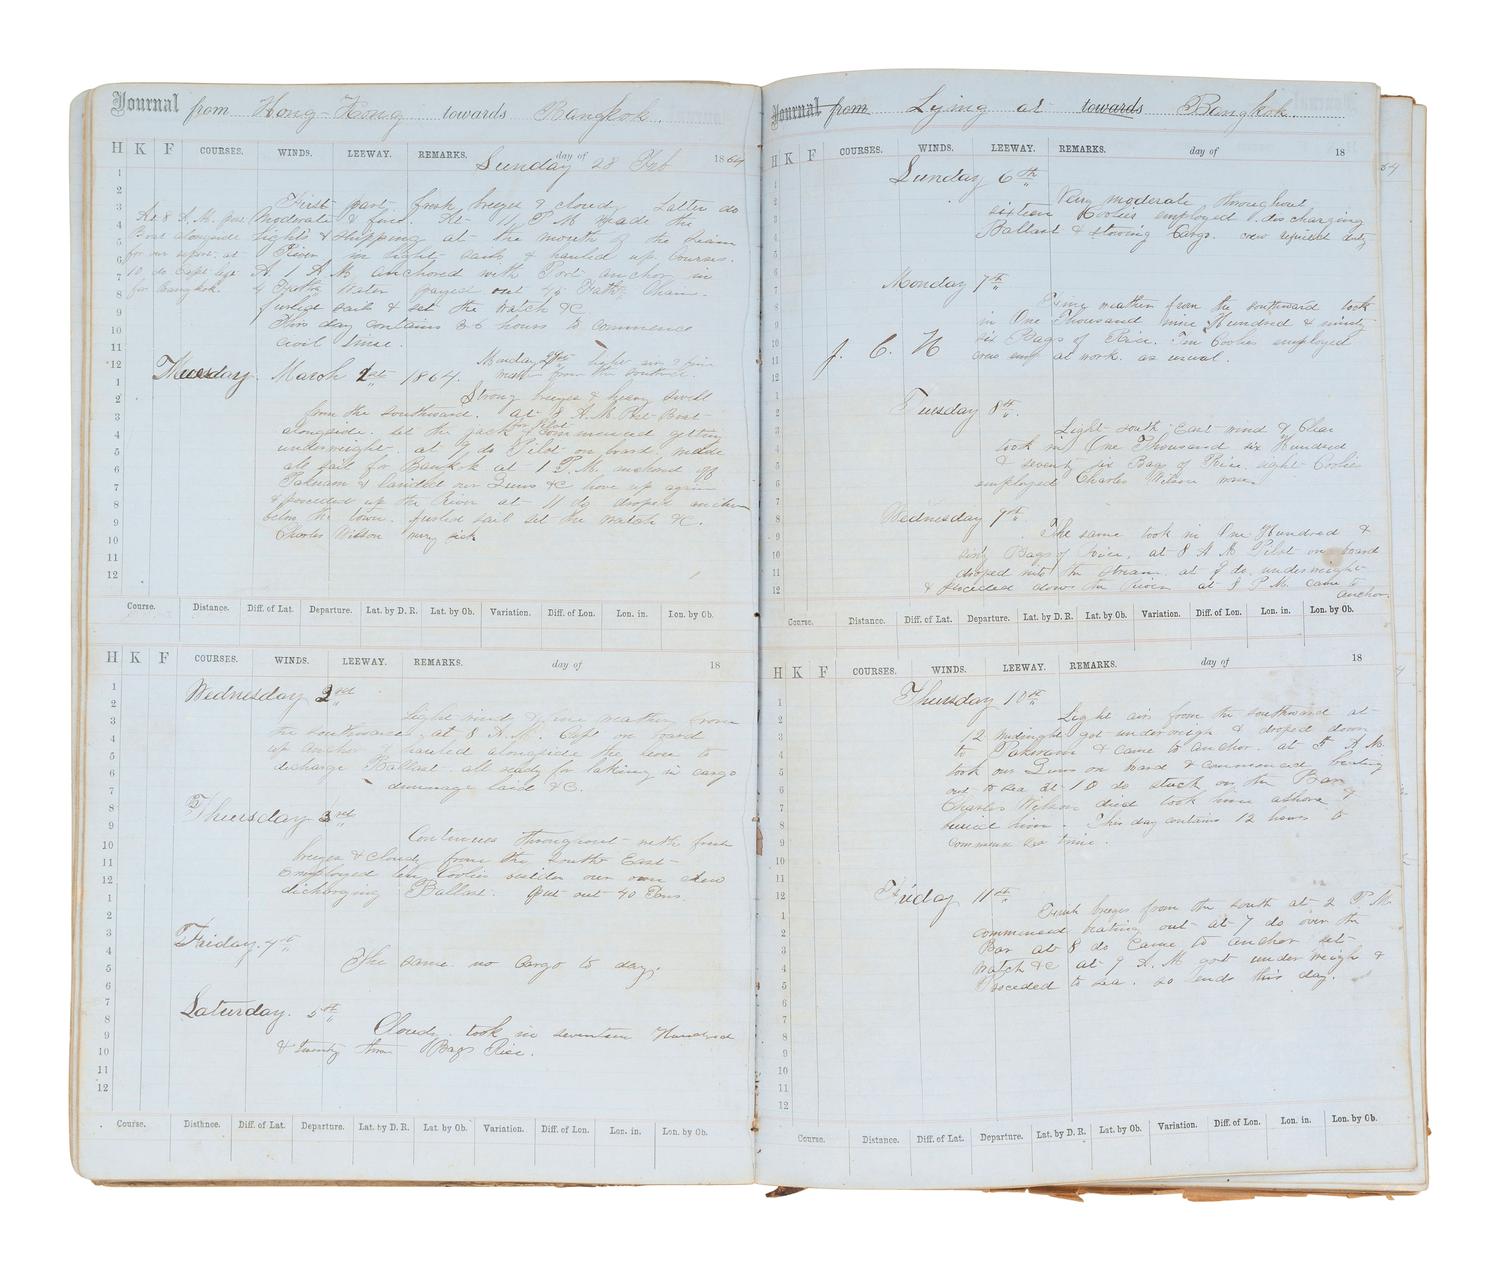 Journal from Hong-Kong towards Bangkok.
H K F COURSES. WINDS. LEEWAY. REMARKS. Sunday day of 28 Feb 1864
First part fresh breezes & cloudy Latter do
At 8 A.M. Moderate & fine. At 11 P M made the
Boat alongside Lights & shipping at the mouth of the Siam
for our report. at River in sight sail & hauled up Courses.
10 do Capt left At 1 A M anchored with Port anchor in
for Bangkok. 4 Water payed out 45 Chain.
furled sail & set the watch &C
This day contains 36 hours to commence
civil time.
Monday 29th light air & fine
Tuesday. March 1st 1864. from the southard.
Strong breezes & heavy swell
from the southward. at 8 A.M. Boat
alongside. set the jack for Pilot Commenced getting
underweight. at 9 do Pilot on board, made
all sail for Bankok at 1 P.M. anchord off
Paknam & landed our Guns &C hove up again
& proceded up the River at 11 do droped anchor
below the town. furled sail set the watch &C.
Charles Wilson very sick
1 2 3 4 5 6 7 8 9 10 11 12
1 2 3 4 5 6 7 8 9 10 11 12
Course. Distance. Diff. of Lat. Departure. Lat. by D. R. Lat. by Ob. Variation. Diff. of Lon. Lon. in. Lon. by Ob.
H K F COURSES. WINDS. LEEWAY. REMARKS. day of 18
Wednesday 2nd
Light winds & fine weather from
the southward, at 8 A.M. Capt on board
up anchor & hauled alongside the to
discharge Ballast. all ready for taking in cargo
dunnage laid &C.
Thursday 3rd
Continues throughout with fresh
breezes & cloudy from the South East
Employed ten Coolies besides our own crew
discharging Ballast. Put out 40 Tons.
Friday. 4th
The same no Cargo to day.
Saturday. 5th
Cloudy. took in seventeen Hundred
& twenty three Bags Rice.
1 2 3 4 5 6 7 8 9 10 11 12
1 2 3 4 5 6 7 8 9 10 11 12
Course. Distance. Diff. of Lat. Departure. Lat. by D. R. Lat. by Ob. Variation. Diff. of Lon. Lon. in. Lon. by Ob.
Journal from Lying at towards Bangkok.
H K F COURSES. WINDS. LEEWAY. REMARKS. day of 18
Sunday 6th
Very moderate throughout
sixteen Coolies employed discharging
Ballast & stowing Cargo. crew duty
Monday 7th
Fine weather from the southward took
in One Thousand nine Hundred & ninety
six Bags of Rice. Ten Coolies employed
J. C. H crew at work. as usual.
Tuesday 8th.
Light South East wind & Clear
took in One Thousand six Hundred
& seventy six Bags of Rice. eight Coolies
employed Charles Wilson worse
Wednesday 9th.
The same took in One Hundred &
sixty Bags of Rice, at 8 A M Pilot on board
droped into the stream. at 9 do. underweight
& proceded down the River at 8 P.M. came to
anchor.
1 2 3 4 5 6 7 8 9 10 11 12
1 2 3 4 5 6 7 8 9 10 11 12
Course. Distance. Diff. of Lat. Departure. Lat. by D. R. Lat. by Ob. Variation. Diff. of Lon. Lon. in. Lon. by Ob.
H K F COURSES. WINDS. LEEWAY. REMARKS. day of 18
Thursday 10th
Light airs from the southward at
12 midnight got underweigh & droped down
to Paknam & came to anchor. at 5 A M.
took our Guns on board & commenced beating
out to sea at 10 do stuck on the Bar
Charles Wilson died took him ashore &
buried him. This day contains 12 hours to
commence sea time.
Friday 11th
Fresh breezes from the south at 2 P.M.
commenced beating out at 7 do over the
Bar at 8 do Came to anchor set
watch &C at 9 A.M got under weigh &
Proceded to sea. so ends this day.
1 2 3 4 5 6 7 8 9 10 11 12
1 2 3 4 5 6 7 8 9 10 11 12
Course. Distance. Diff. of Lat. Departure. Lat. by D. R. Lat. by Ob. Variation. Diff. of Lon. Lon. in. Lon. by Ob.